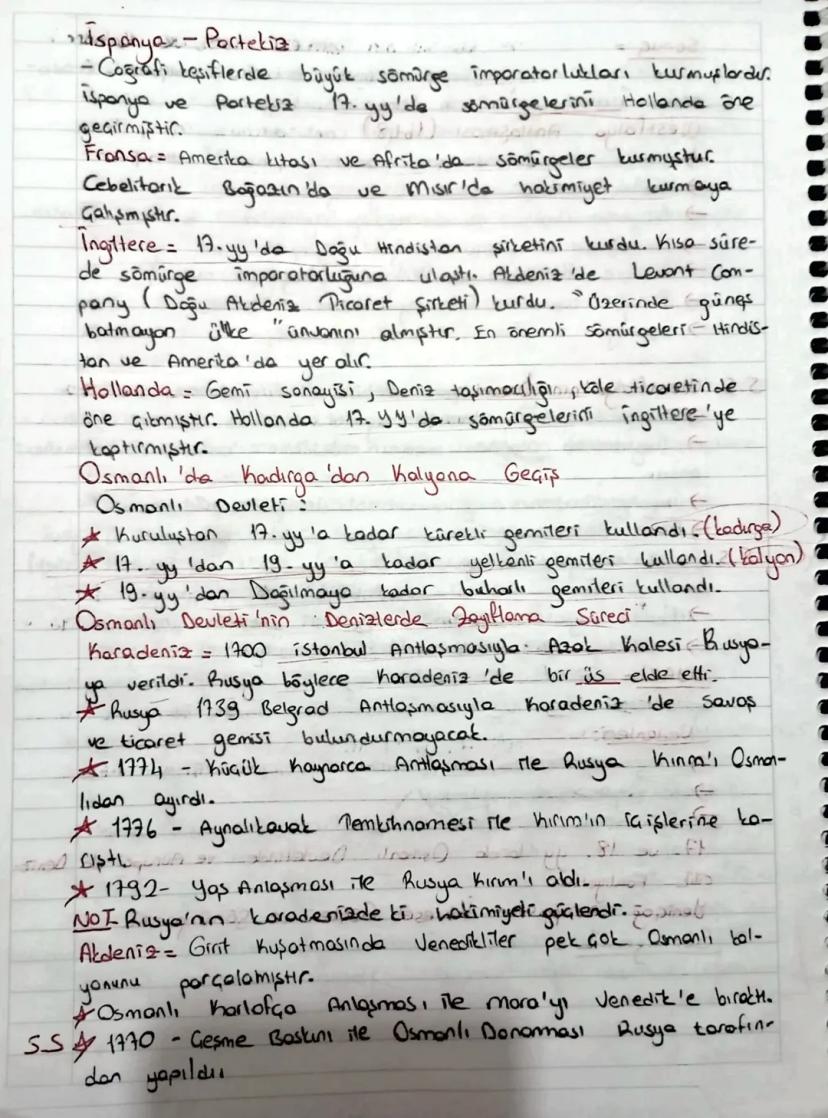 İspanya - Portekiz
- Coğrafi keşiflerde büyük sömürge imparatorlukları kurmuşlardır.
İspanya ve Portekiz 17. yy'da sömürgelerini Hollanda öne
geçirmiştir.
Fransa = Amerika kıtası ve Afrika'da sömürgeler kurmuştur.
Cebelitarık Boğazın'da ve Mısır'da hakimiyet kurmaya
çalışmıştır.
İngiltere = 17. yy'da Doğu Hindistan şirketini kurdu. Kısa süre-
de sömürge imparatorluğuna ulaştı. Akdeniz'de Levant Com-
pany (Doğu Akdeniz Ticaret Şirketi) kurdu. "Üzerinde güneş
batmayan ülke" ünvanını almıştır. En önemli sömürgeleri - Hindis-
tan ve Amerika'da yer alır.
Hollanda = Gemi sanayisi, Deniz taşımacılığı, köle ticaretinde
öne çıkmıştır. Hollanda 17. yy'da sömürgelerini İngiltere'ye
kaptırmıştır.
Osmanlı'da Kadırga'dan Kalyona Geçiş
Osmanlı Devleti :
★ Kuruluştan 17. yy'a kadar kürekli gemileri kullandı. (kadırga)
★ 17. yy'dan 19. yy'a kadar yelkenli gemileri kullandı. (kalyon)
★ 19. yy'dan Dağılmaya kadar buharlı gemileri kullandı.
Osmanlı Devleti'nin Denizlerde Zayıflama Süreci
Karadeniz = 1700 İstanbul Antlaşmasıyla Azak Kalesi Rusya-
ya verildi. Rusya böylece Karadeniz'de bir üs elde etti.
★ Rusya 1739 Belgrad Antlaşmasıyla Karadeniz'de Savaş
ve ticaret gemisi bulundurmayacak.
★ 1774 - Küçük Kaynarca Antlaşması ile Rusya Kırım'ı Osman-
lıdan ayırdı.
★ 1776 - Aynalıkavak Tenkihnamesi ile Kırım'ın içişlerine ka-
rıştı.
★ 1792- Yaş Anlaşması ile Rusya Kırım'ı aldı.
NOT Rusya'nın karadenizde ki hakimiyeti güçlendi.
Akdeniz = Girit Kuşatmasında Venedikliler pek çok Osmanlı kal-
yonunu parçalamıştır.
★ Osmanlı Karlofça Anlaşması ile mora'yı Venedik'e bıraktı.
S.S ★ 1770 - Çeşme Baskını ile Osmanlı Donanması Rusya tarafın-
dan yapıldı